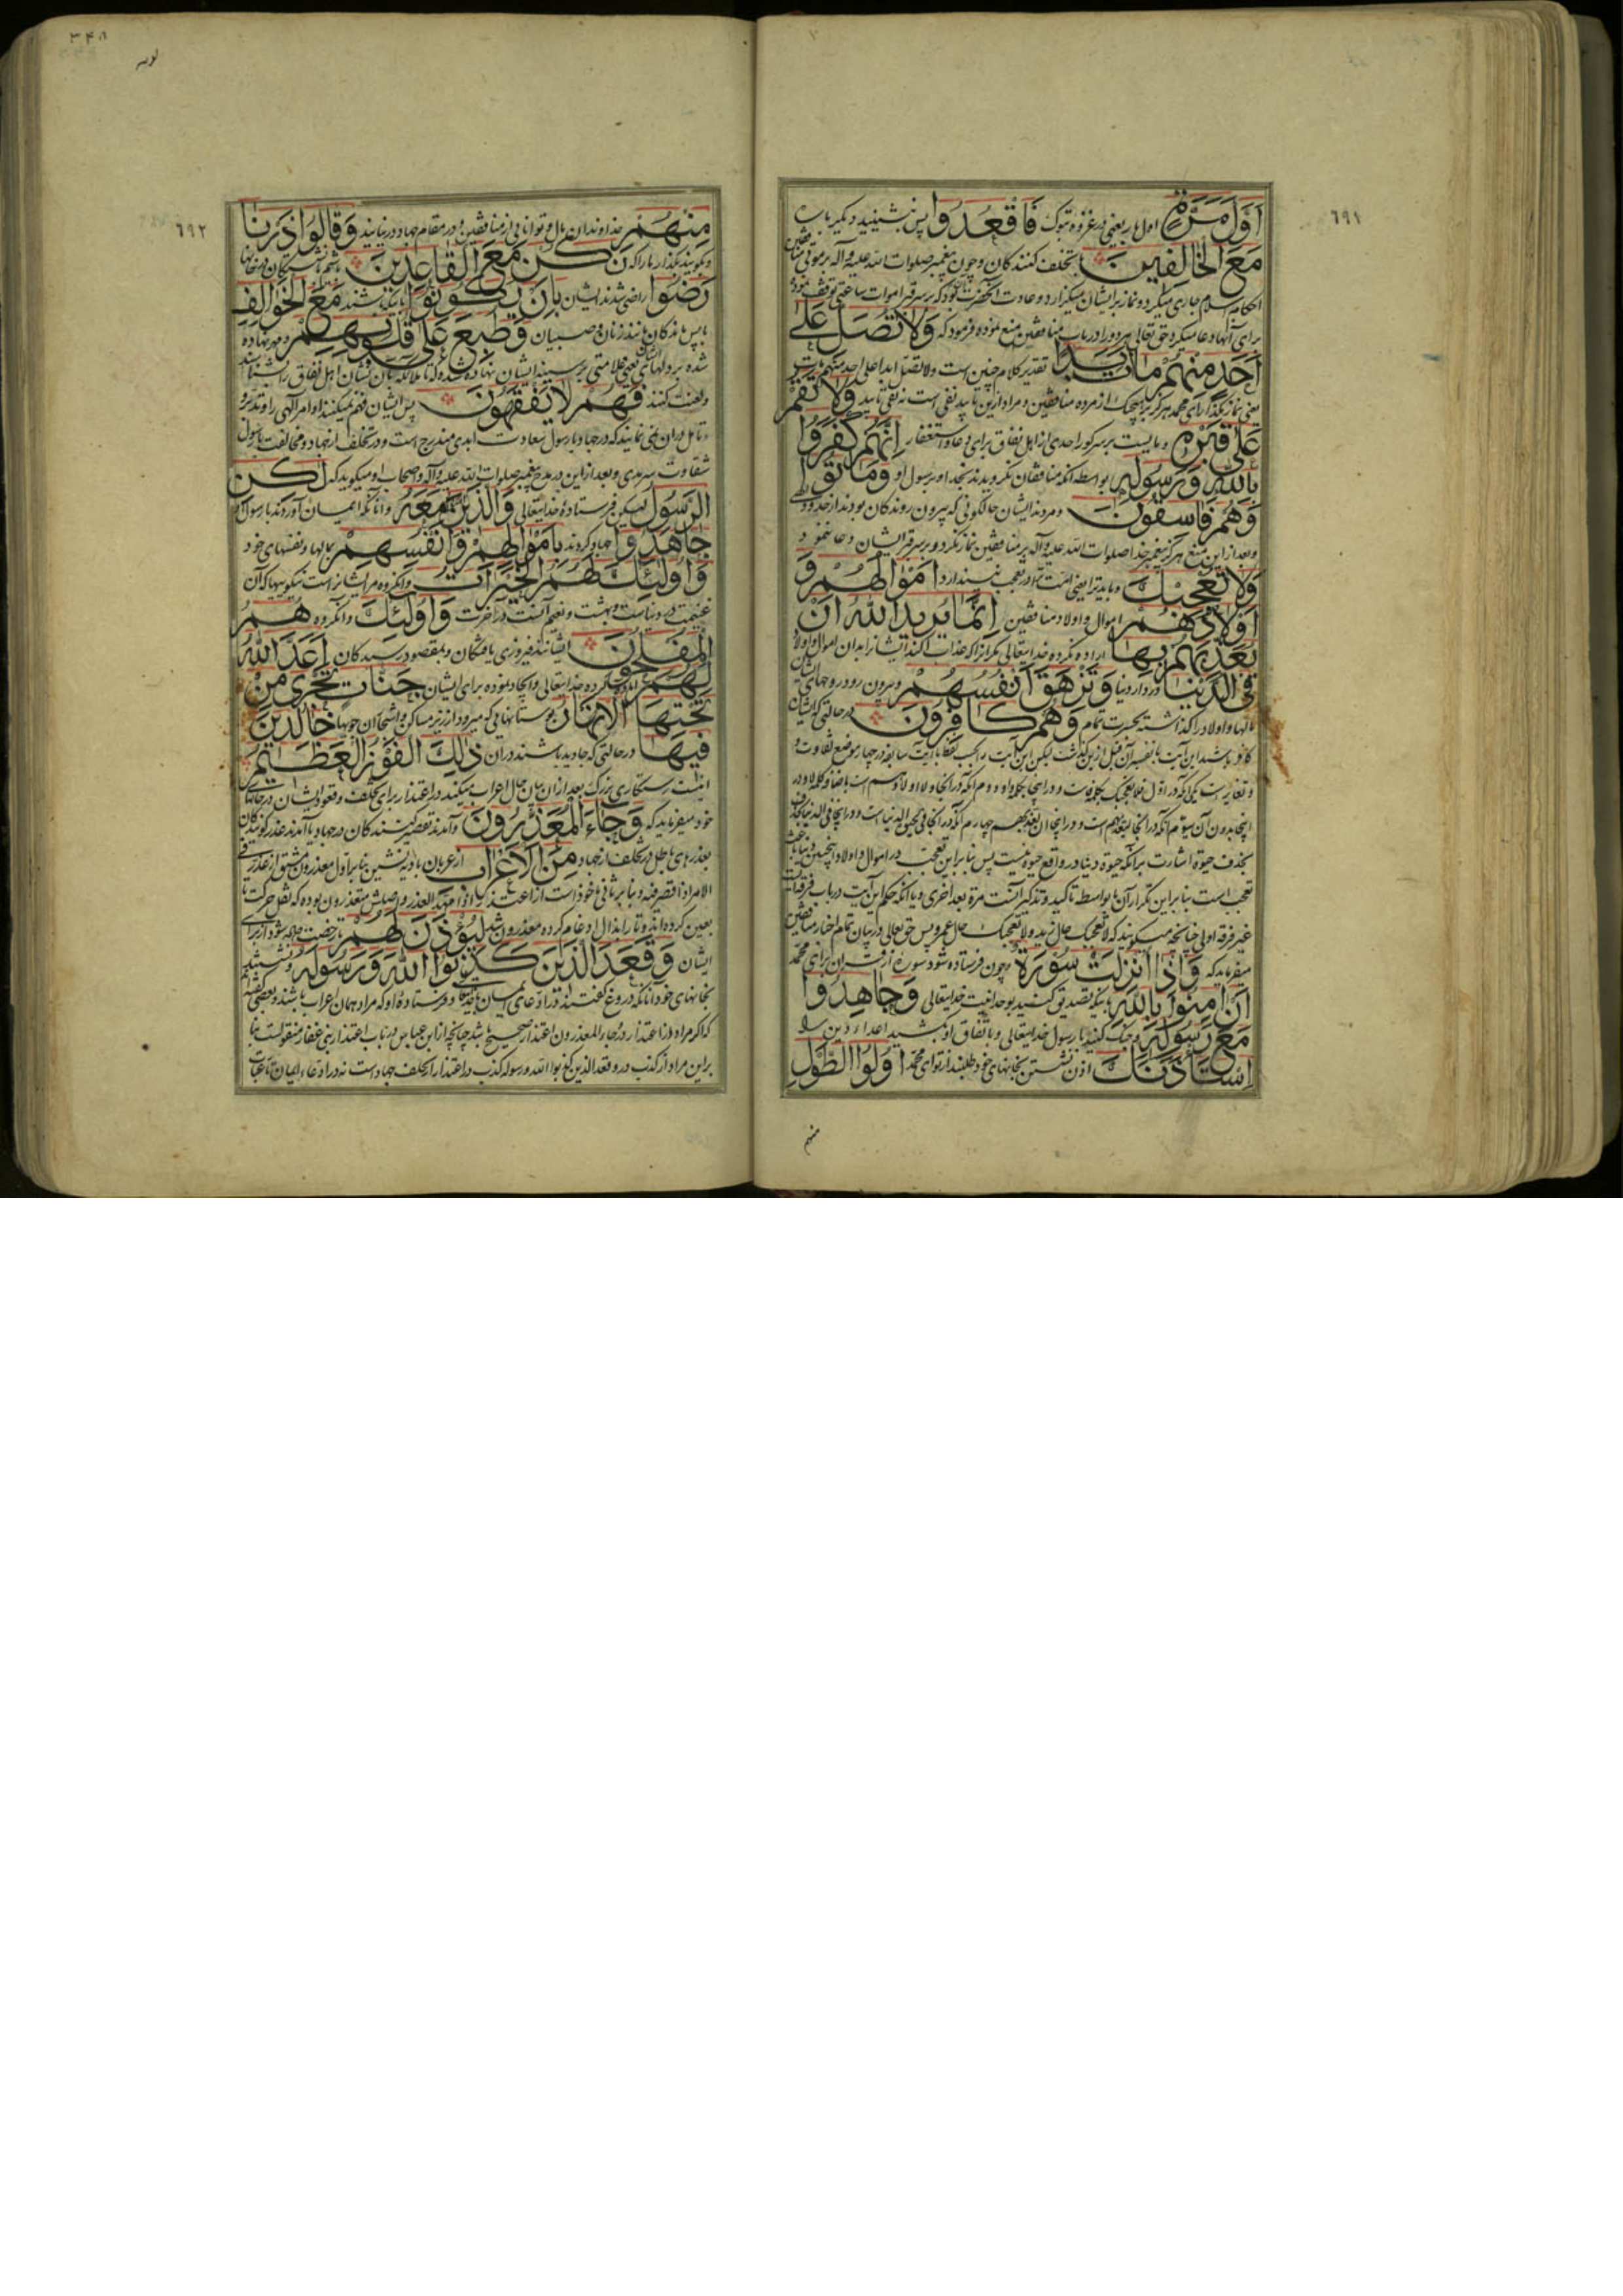 ٦٩١
اَوَّلَ مَرَّةٍ اول بار یعنی در غزوه تبوک فَاقْعُدُوا پس بنشینید دیگر باره
مَعَ الْخَالِفِینَ با تخلف کنندگان و چون پیغمبر صلوات الله علیه و آله بر موتی منافقین
احکام اسلام جاری میکرد و نماز بر ایشان میگزارد و عادت آنحضرت این بود که بر سر قبر اموات ساعتی توقف نموده
برای آنها دعا میکرد حق تعالی هر دو را در باب منافقین منع نموده فرمود که وَلَا تُصَلِّ عَلٰی
اَحَدٍ مِنْهُمْ مَاتَ اَبَدًا تقدیر کلام چنین است ولا تصل ابدا علی احد منهم مات
یعنی نماز مگذار ای محمد هرگز بر هیچیک از مرده منافقین و مراد ازین تابید نفی است نه نفی تابید وَلَا تَقُمْ
عَلٰی قَبْرِهِ و مایست بر سر گور احدی از اهل نفاق برای دعا و استغفار اِنَّهُمْ کَفَرُوا
بِاللّٰهِ وَرَسُولِهِ بواسطه آنکه منافقان نگرویدند بخدا و رسول او وَمَاتُوا
وَهُمْ فَاسِقُونَ و مردند ایشان حالکونی که بیرون روندگان بودند از حدود الهی
و بعد ازین منع هرگز پیغمبر خدا صلوات الله علیه و آله بر منافقین نماز نکرد و بر سر قبر ایشان دعا ننمود
وَلَا تُعْجِبْکَ و باید ترا یعنی امت ترا در تعجب نیندازد اَمْوَالُهُمْ وَ
اَوْلَادُهُمْ اموال و اولاد منافقین اِنَّمَا یُرِیدُ اللّٰهُ اَنْ
یُعَذِّبَهُمْ بِهَا اراده نکرده خدایتعالی مگر آنرا که عذاب کند ایشانرا بدان اموال و اولاد
فِی الدُّنْیَا در دار دنیا وَتَزْهَقَ اَنْفُسُهُمْ و بیرون رود روحهای ایشان
مالها و اولاد را گذاشته بحسرت تمام وَهُمْ کَافِرُونَ در حالتی که ایشان
کافر باشند این آیت با تفسیر آن قبل ازین گذشت لیکن این آیت را بحسب لفظ با آیت سابقه در چهار موضع تفاوت و
و تغایر است یکی آنکه در اول فلا تعجبک بکلمه فاست و در اینجا بکلمه واو دوم آنکه در آنجا ولا اولادهم است باضافه کلمه لا و در
اینجا بدون آن سیوم آنکه در آنجا لیعذبهم است و در اینجا ان یعذبهم چهارم آنکه در آنجا فی الحیوة الدنیا است و در اینجا فی الدنیا
بحذف حیوة اشارت بر آنکه حیوة دنیا در واقع حیوة نیست پس بنابراین تعجب در اموال و اولاد اینچنین دنیا
تعجب است بنابراین تکرار آن یا بواسطه تاکید و تذکیر آنست مرة بعد اخری و یا آنکه حکم این آیت در باب فرقه ایست
غیر فرقه اولی چنانچه میگویند که لا تعجبک حال زید و لا تعجبک حال عمرو پس حق تعالی در بیان تمام اخبار منافقین
میفرماید که وَاِذَا اُنْزِلَتْ سُورَةٌ و چون فرستاده شود سوره از قرآن برای محمد
اَنْ اٰمِنُوا بِاللّٰهِ باینکه تصدیق کنید بوحدانیت خدایتعالی وَجَاهِدُوا
مَعَ رَسُولِهِ و جنگ کنید با رسول خدایتعالی و باتفاق او بکشید اعداء دین را
اسْتَأْذَنَکَ اذن نشستن بخانهای خود طلبند از تو ای محمد اُولُوا الطَّوْلِ
منهم
٣٤٨
توبه
٦٩٢
مِنْهُمْ خداوندان مال و توانائی از منافقین در مقام جهاد در نیایند وَقَالُوا ذَرْنَا
و گویند بگذار ما را که نَکُنْ مَعَ الْقَاعِدِینَ باشیم با نشستگان در خانها
رَضُوا راضی شدند ایشان بِاَنْ یَکُونُوا باینکه باشند مَعَ الْخَوَالِفِ
با پس ماندگان مانند زنان و صبیان وَطُبِعَ عَلٰی قُلُوبِهِمْ و مهر نهاده
شده بر دلهای ایشان یعنی علامتی بر سینه ایشان نهاده شده که تا ملائکه بآن نشان اهل نفاق را بشناسند
و لعنت کنند فَهُمْ لَا یَفْقَهُونَ پس ایشان فهم نمیکنند اوامر الهی را و تدبر و
تامل در آن نمی نمایند که در جهاد با رسول سعادت ابدی مندرج است و در تخلف از جهاد و مخالفت با رسول
شقاوت سرمدی و بعد ازاین در مدح پیغمبر صلوات الله علیه و آله و اصحاب او میگوید که لٰکِنِ
الرَّسُولُ لیکن فرستادهٔ خدایتعالی وَالَّذِینَ اٰمَنُوا مَعَهُ و آنانکه ایمان آوردند با رسول او
جَاهَدُوا جهاد کردند بِاَمْوَالِهِمْ وَاَنْفُسِهِمْ بمالها و نفسهای خود
وَاُولٰئِکَ لَهُمُ الْخَیْرَاتُ و آنگروه مر ایشانراست نیکوییها که آن
غنیمت در دنیاست و بهشت و نعیم آنست در آخرت وَاُولٰئِکَ و آنگروه هُمُ
الْمُفْلِحُونَ ایشانند فیروزی یافتگان و بمقصود رسیدگان اَعَدَّ اللّٰهُ
لَهُمْ آماده کرده خدایتعالی و ایجاد نموده برای ایشان جَنَّاتٍ تَجْرِی مِنْ
تَحْتِهَا الْاَنْهَارُ بوستانهائی که میرود از زیر مساکن و اشجار آن جویها خَالِدِینَ
فِیهَا در حالتی که جاوید باشند در آن ذٰلِکَ الْفَوْزُ الْعَظِیمُ
اینست رستگاری بزرگ بعد از آن بیان حال اعراب میکند در اعتذار برای تخلف و قعود ایشان در خانهای
خود میفرماید که وَجَاءَ الْمُعَذِّرُونَ و آمدند تقصیر کنندگان در جهاد یا آمدند عذر گویندگان
بعذرهای باطل در تخلف از جهاد مِنَ الْاَعْرَابِ از عربان بادیه نشین بنابر اول معذرون مشتق از عذر فی
الامر اذا قصر فیه و بنابر ثانی ماخوذ است از اعتذر اذا مهد العذر و اصلش معتذرون بوده که نقل حرکت تا
بعین کرده اند و تا را بذال ادغام کرده معذرون شد لِیُؤْذَنَ لَهُمْ تا رخصت داده شود از برای
ایشان وَقَعَدَ الَّذِینَ کَذَبُوا اللّٰهَ وَرَسُولَهُ و نشستند
بخانهای خود آنانکه دروغ گفتند در ادعای ایمان با خدا و فرستادهٔ او که مراد همان اعراب باشند و بعضی گفته
که اگر مراد از اعتذار در و جاء المعذرون اعتذار صحیح باشد چنانچه از ابن عباس در باب اعتذار بنی غفار منقولست بنا
براین مراد از کذب در و قعد الذین کذبوا الله و رسوله کذب در اعتذار از تخلف جهادست نه در ادعاء ایمان